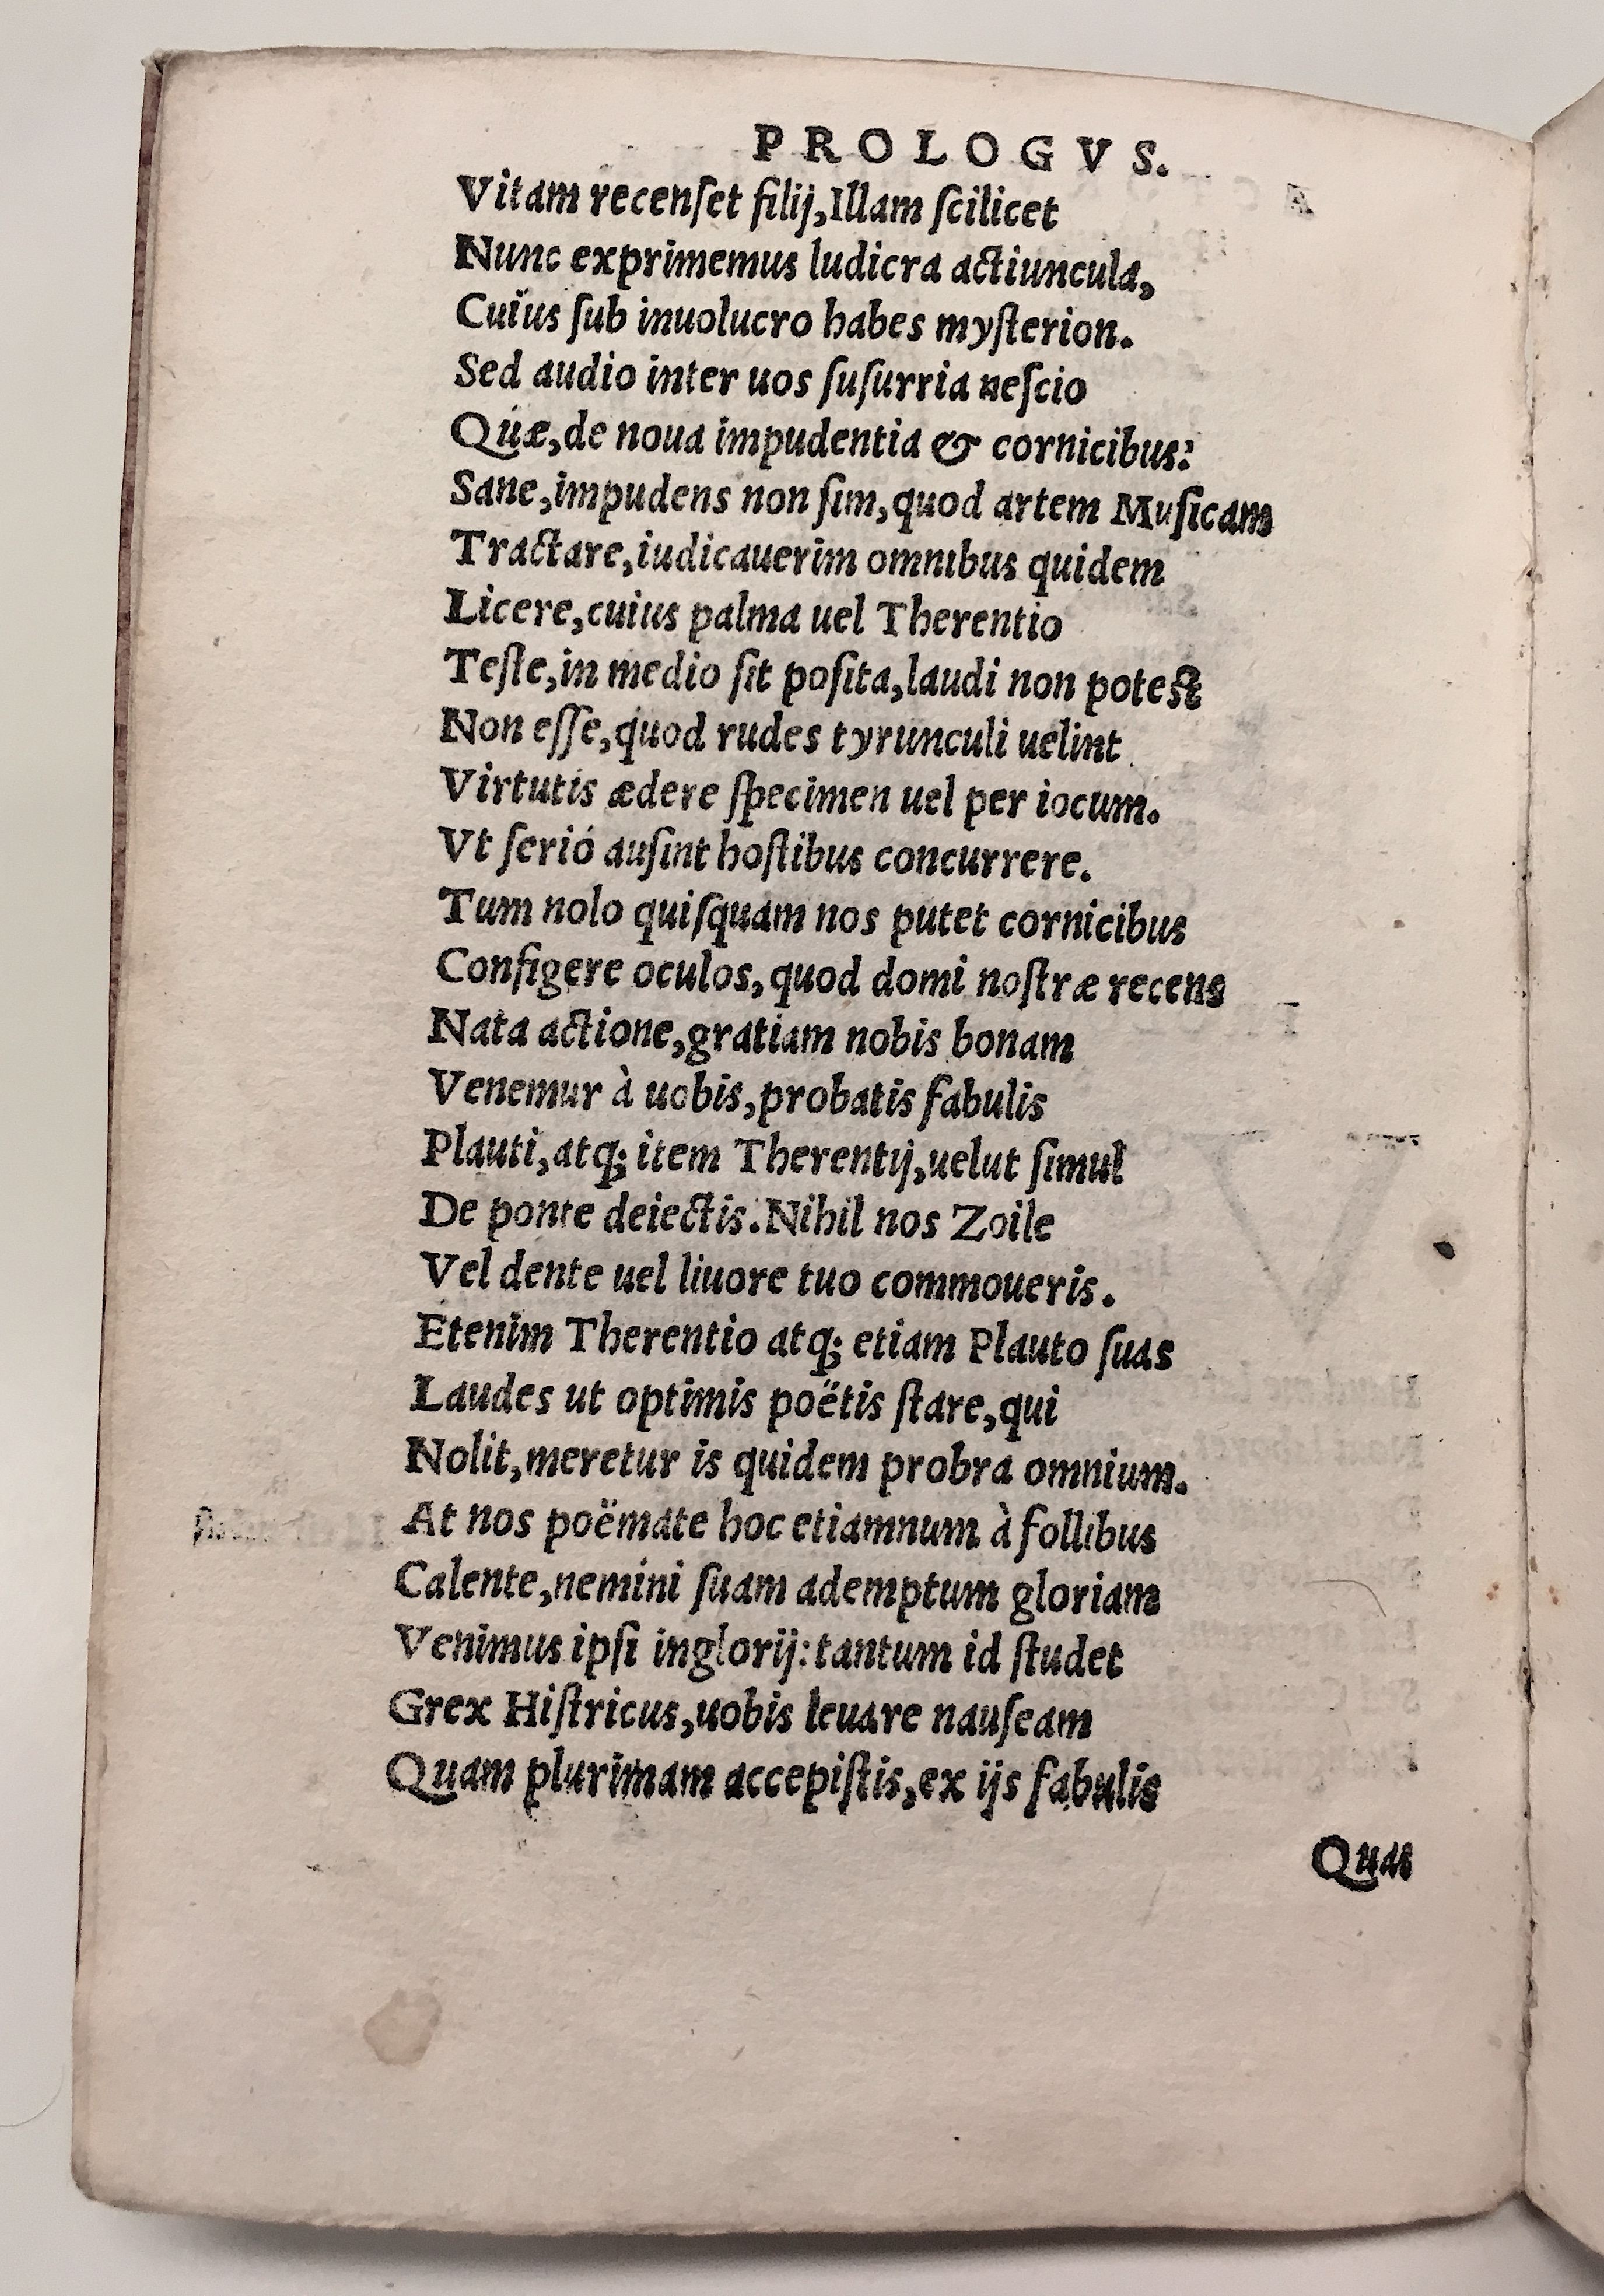 PROLOGVS.
Vitam recenſet filij,Illam ſcilicet
Nunc exprimemus ludicra actiuncula,
Cuïus ſub inuolucro habes myſterion.
Sed audio inter uos ſuſurria neſcio
Quæ,de noua impudentia & cornicibus:
Sane,impudens non ſim,quod artem Muſicam
Tractare,iudicauerim omnibus quidem
Licere,cuius palma uel Therentio
Teſte,in medio ſit poſita,laudi non potest
Non eſſe,quod rudes tyrunculi uelint
Virtutis ædere ſpecimen uel per iocum.
Vt ſerió auſint hoſtibus concurrere.
Tum nolo quiſquam nos putet cornicibus
Configere oculos,quod domi noſtræ recens
Nata actione,gratiam nobis bonam
Venemur à uobis,probatis fabulis
Plauti,atq; item Therentij,uelut ſimul
De ponte deiectis.Nihil nos Zoile
Vel dente uel liuore tuo commoueris.
Etenim Therentio atq; etiam Plauto ſuas
Laudes ut optimis poëtis ſtare,qui
Nolit,meretur is quidem probra omnium.
At nos poëmate hoc etiamnum à follibus
Calente,nemini ſuam ademptum gloriam
Venimus ipſi inglorij:tantum id ſtudet
Grex Hiſtricus,uobis leuare nauſeam
Quam plurimam accepiſtis,ex ijs fabulis
Quas